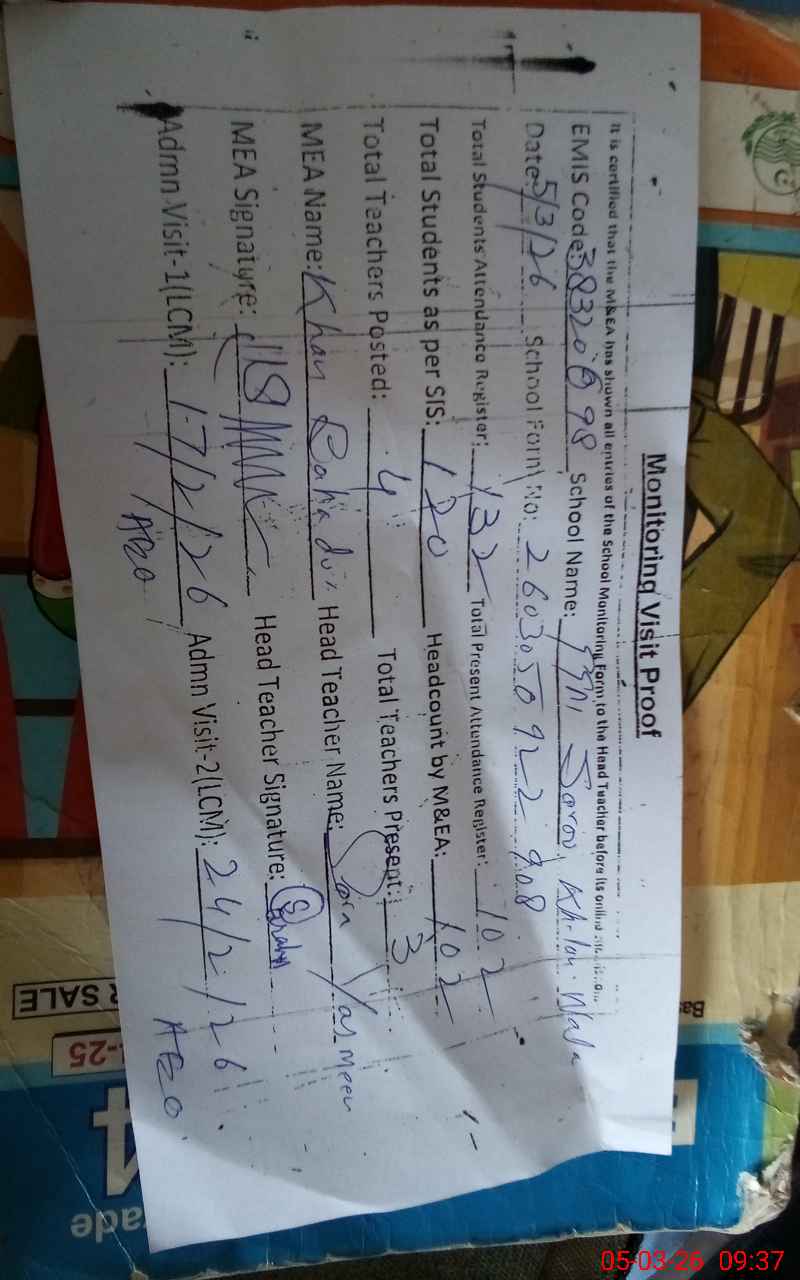 Monitoring Visit Proof
It is certified that the M&EA has shown all entries of the School Monitoring Form to the Head Teacher before its online
EMIS Code: 38320098 School Name: Jarov Khılou Wala
Date: 5/3/26 School Form No: 260305092298
Total Students Attendance Register: 132 Total Present Attendance Register: 102
Total Students as per SIS: 120 Headcount by M&EA: 102
Total Teachers Posted: 4 Total Teachers Present: 3
MEA Name: Khan Bahadur Head Teacher Name: Yasmeen
MEA Signature: Head Teacher Signature:
Admn Visit-1(LCM): 17/2/26 Admn Visit-2(LCM): 24/2/26
AEO AEO
R SALE
-25
4
ade
Bas
05-03-26 09:37